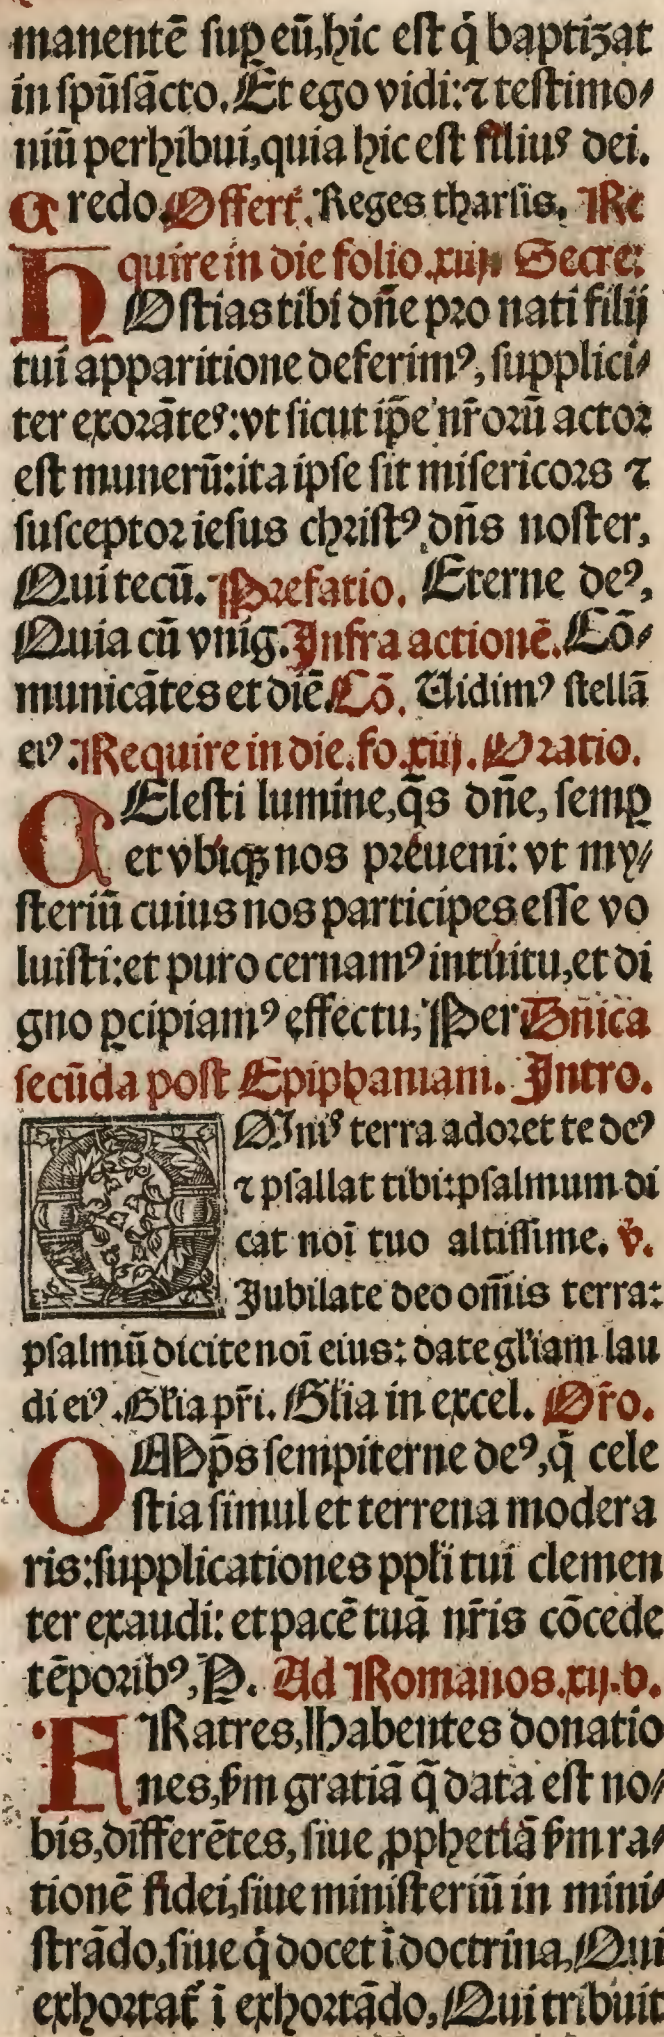 manentē ſuꝑ eū, hic eſt q̇ baptiʒat
in ſpūſācto. Et ego vidi: ⁊ teſtimo⸗
niū perhibui, quia hic eſt filiuꝰ dei.
Credo. Offert̄. Reges tharſis. Re
quire in die folio. xiij. Secre:
HOſtias tibi dn̄e pꝛo nati filij
tui apparitione deferimꝰ, ſupplici⸗
ter exoꝛāteꝰ: vt ſicut ip̄e nr̄oꝛū actoꝛ
eſt munerū: ita ipſe ſit miſericoꝛs ⁊
ſuſceptoꝛ ieſus chꝛiſtꝰ dn̄s noſter,
Qui tecū. Pꝛefatio. Eterne deꝰ,
Quia cū vnig. Infra actionē. Cō⸗
municātes et diē. Cō. Uidimꝰ ſtellā
eiꝰ. Require in die. fo. xiij. Oꝛatio.
CEleſti lumine, q̄s dn̄e, ſemꝑ
et vbiqꝫ nos pꝛeueni: vt my⸗
ſteriū cuius nos participes eſſe vo
luiſti: et puro cernamꝰ intúitu, et di
gno ꝑcipiamꝰ effectu, Per Dn̄ica
ſecūda poſt Epiphaniam. Intro.
OMniꝰ terra adoꝛet te deꝰ
⁊ pſallat tibi: pſalmum di
cat noī tuo altiſſime. v̄.
Jubilate deo om̄is terra:
pſalmū dicite noī eius: date gl̄iam lau
di eiꝰ. Gl̄ia pr̄i. Gl̄ia in excel. Or̄o.
OMp̄s ſempiterne deꝰ, q̇ cele
ſtia ſimul et terrena modera
ris: ſupplicationes ppl̄i tui clemen
ter exaudi: et pacē tuā nr̄is cōcede
tēpoꝛibꝰ, P. Ad Romanos. xij. b.
FRatres, Habentes donatio
nes, ẜm gratiā q̄ data eſt no⸗
bis, differētes, ſiue ꝓphetiā ẜm ra⸗
tionē fidei, ſiue miniſteriū in mini⸗
ſtrādo, ſiue q̇ docet ī doctrina, Qui
exhoꝛtat̄ ī exhoꝛtādo, Qui tribuit